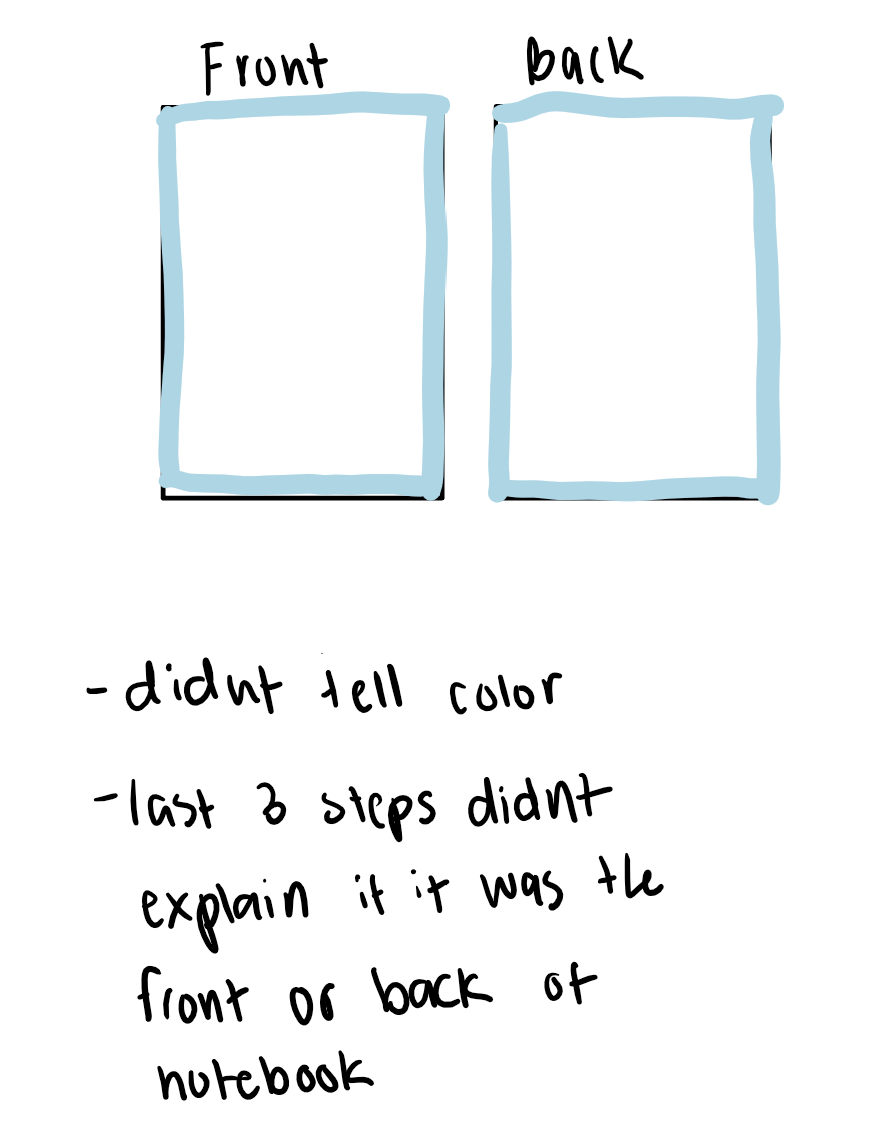 Front
Back
- didnt tell color
- last 3 steps didnt
explain if it was the
front or back of
notebook